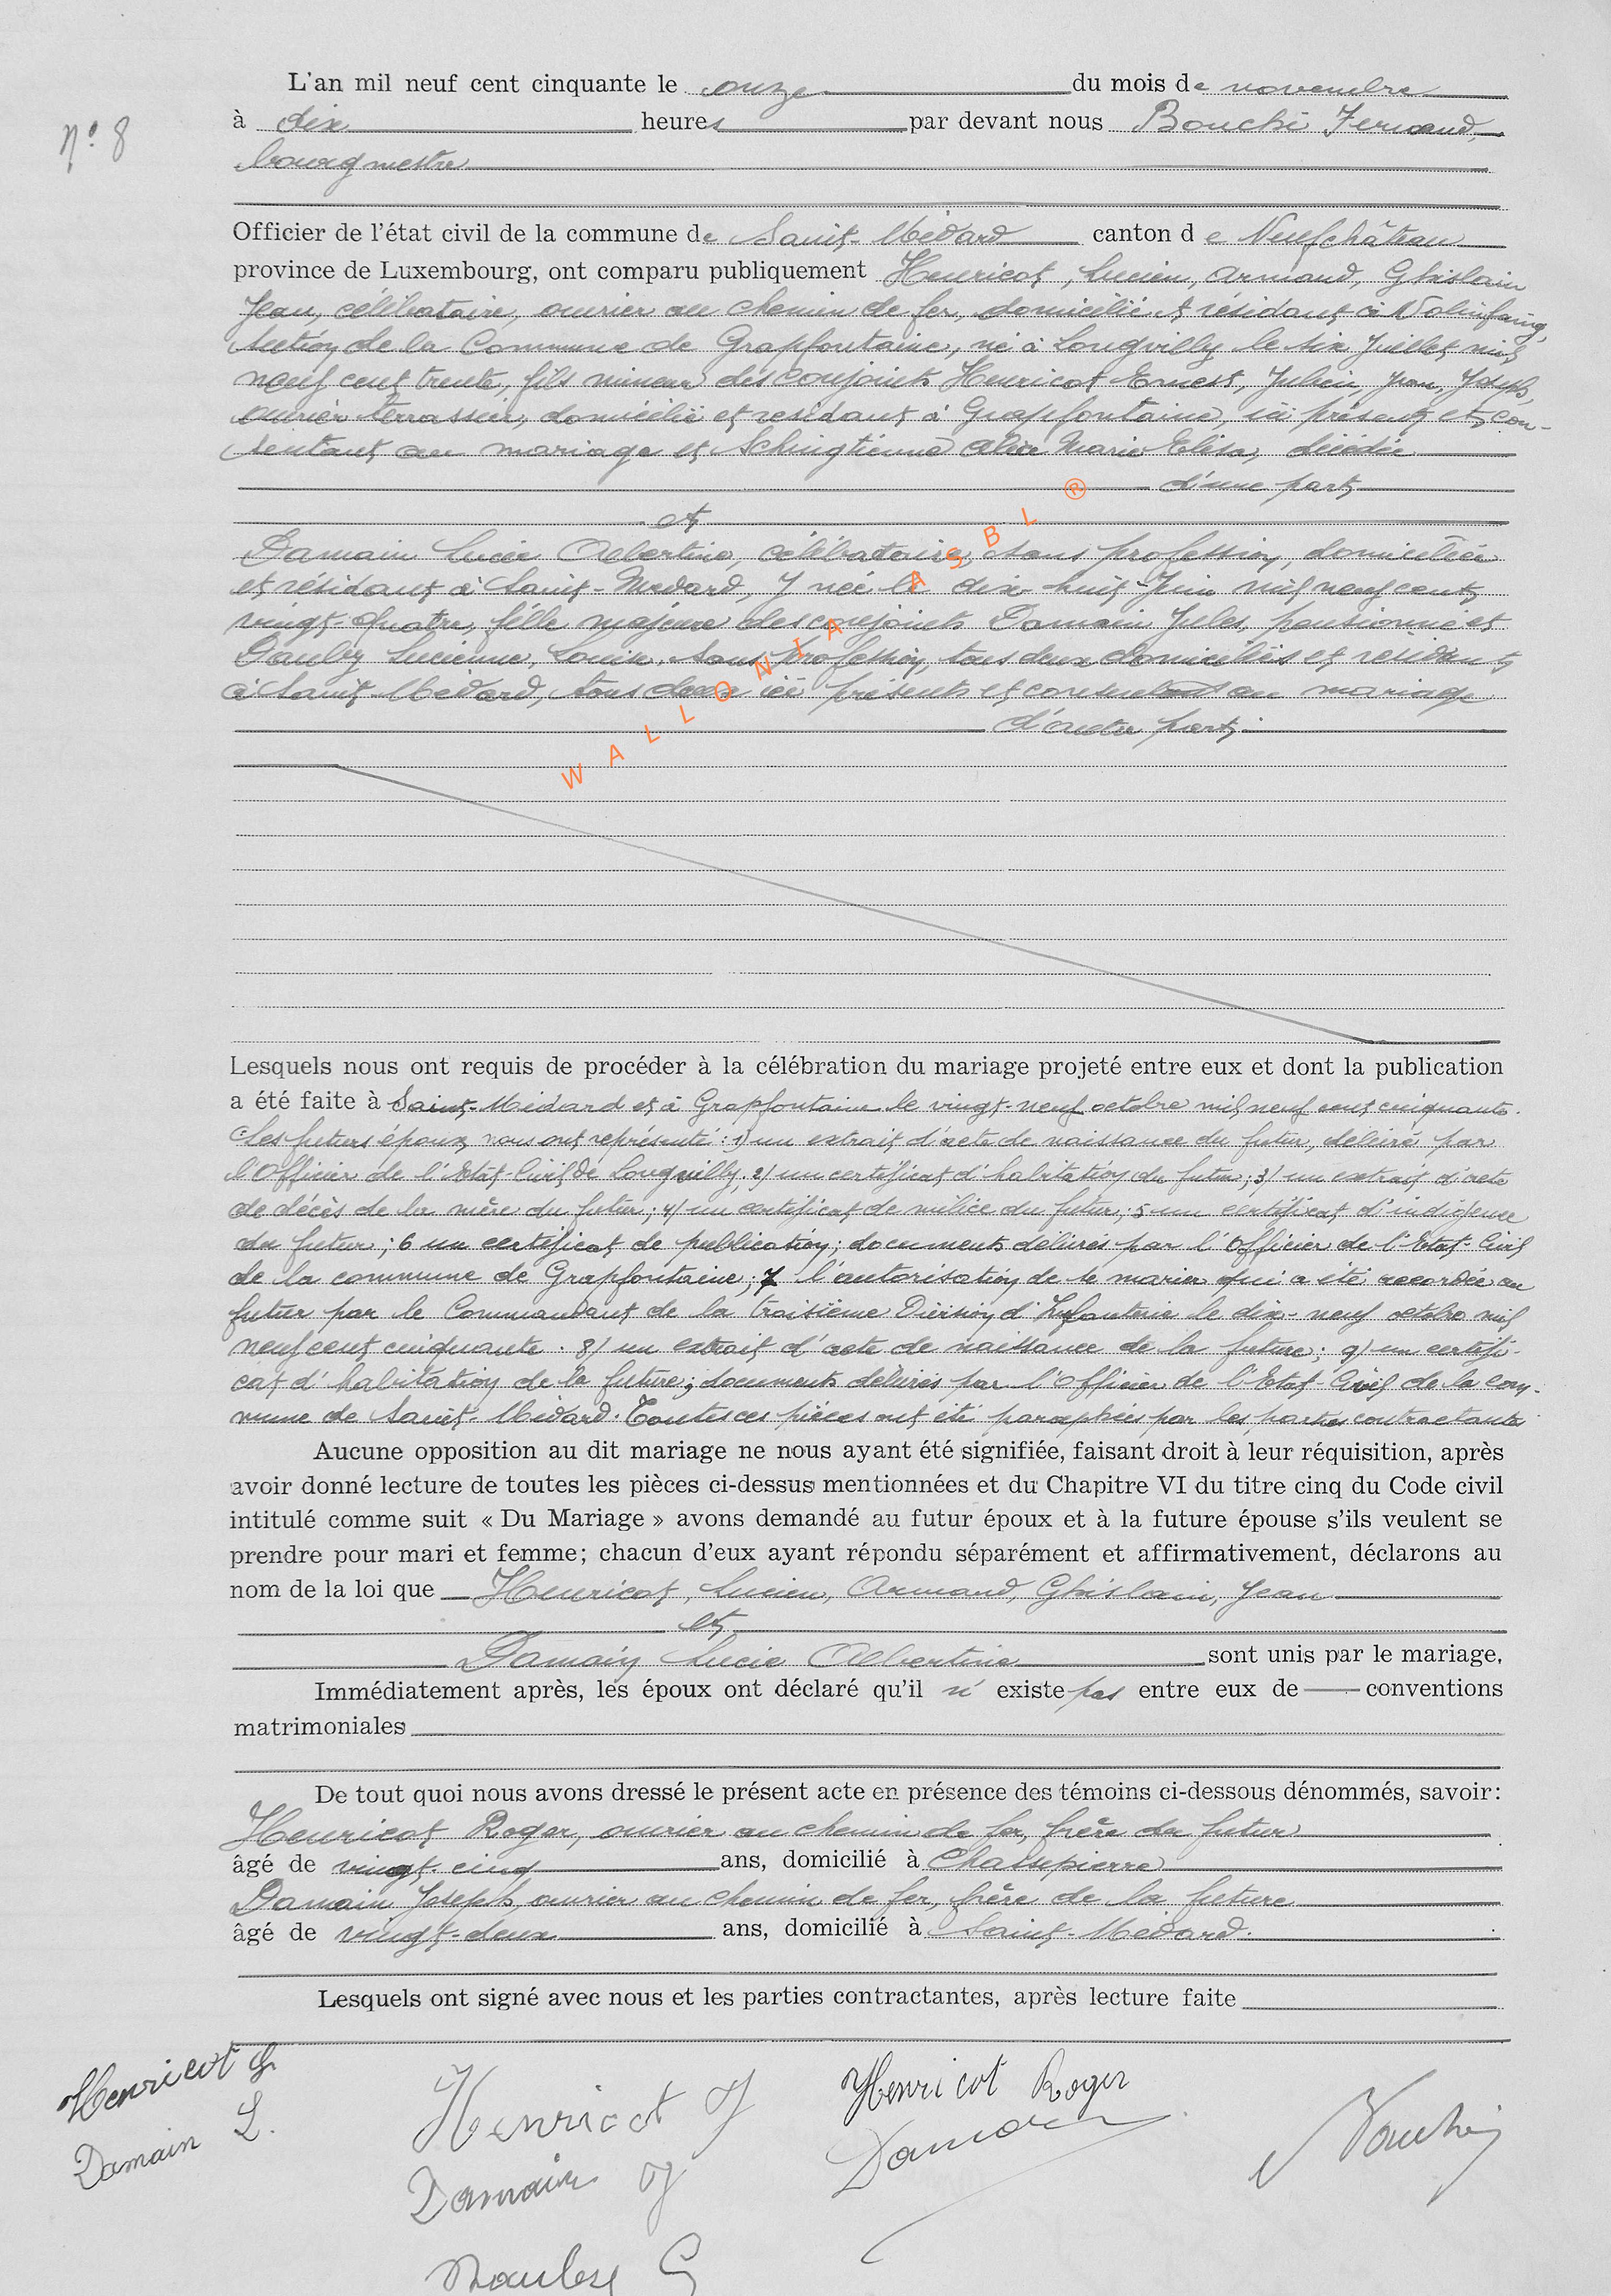 n° 8
L'an mil neuf cent cinquante le onze du mois de novembre
à dix heures par devant nous Bouché Fernand,
bourgmestre
Officier de l'état civil de la commune de Saint-Médard canton de Neufchâteau
province de Luxembourg, ont comparu publiquement Henricot, Lucien, Armand, Ghislain
Jean, célibataire, ouvrier au chemin de fer, domicilié et résidant à Nolinfaing,
section de la Commune de Grapfontaine, né à Longvilly le six Juillet mil
neuf cent trente, fils mineur des conjoints Henricot Ernest, Julien, Jean, Joseph,
ouvrier terrassier, domicilié et résidant à Grapfontaine, ici présent et con-
sentant au mariage et Schingtienne Marie Elisa, décédée
d'une part,
et
Damain Lucie Albertine, célibataire, sans profession, domiciliée
et résidant à Saint-Médard, y née le dix-huit Juin mil neuf cent
vingt-quatre, fille majeure des conjoints Damain Jules, pensionné et
Dauby Lucienne, Louise, sans profession, tous deux domiciliés et résidant
à Saint-Médard, tous deux ici présents et consentant au mariage
d'autre part;
WALLONIA ASBL ®
Lesquels nous ont requis de procéder à la célébration du mariage projeté entre eux et dont la publication
a été faite à Saint-Médard et à Grapfontaine le vingt-neuf octobre mil neuf cent cinquante.
Les futurs époux nous ont représenté : 1) un extrait d'acte de naissance du futur, délivré par
l'Officier de l'Etat-Civil de Longvilly; 2) un certificat d'habitation du futur; 3) un extrait d'acte
de décès de la mère du futur; 4) un certificat de milice du futur; 5 un certificat d'indigence
du futur; 6 un certificat de publication; documents délivrés par l'Officier de l'Etat-Civil
de la commune de Grapfontaine; 7 l'autorisation de se marier qui a été accordée au
futur par le Commandant de la troisième Division d'Infanterie le dix-neuf octobre mil
neuf cent cinquante. 8) un extrait d'acte de naissance de la future; 9) un certifi-
cat d'habitation de la future; documents délivrés par l'Officier de l'Etat-Civil de la com-
mune de Saint-Médard. Toutes ces pièces ont été paraphées par les parties contractantes
Aucune opposition au dit mariage ne nous ayant été signifiée, faisant droit à leur réquisition, après
avoir donné lecture de toutes les pièces ci-dessus mentionnées et du Chapitre VI du titre cinq du Code civil
intitulé comme suit « Du Mariage » avons demandé au futur époux et à la future épouse s'ils veulent se
prendre pour mari et femme; chacun d'eux ayant répondu séparément et affirmativement, déclarons au
nom de la loi que Henricot, Lucien, Armand, Ghislain, Jean
et
Damain Lucie Albertine sont unis par le mariage.
Immédiatement après, les époux ont déclaré qu'il n'existe pas entre eux de conventions
matrimoniales
De tout quoi nous avons dressé le présent acte en présence des témoins ci-dessous dénommés, savoir:
Henricot Roger, ouvrier au chemin de fer, frère du futur
âgé de vingt-cinq ans, domicilié à Chassepierre
Damain Joseph, ouvrier au chemin de fer, frère de la future
âgé de vingt-deux ans, domicilié à Saint-Médard.
Lesquels ont signé avec nous et les parties contractantes, après lecture faite
Henricot
Damain L.
Henricot J
Damain J
Dauby
Henricot Roger
Damain
Bouché